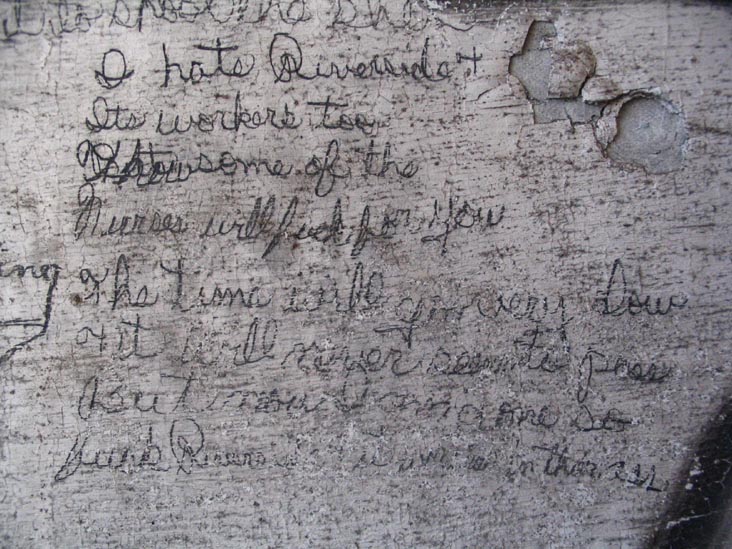 I hate Riverside +
Its workers too
some of the
Nurses will fuck for you
ing
The time will go very slow
+ it will never seem to pass
But now I'm gone so
fuck Riverside in their ass